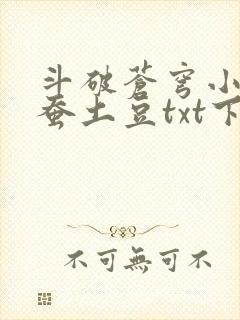 斗破苍穹小
蚕土豆txt下
不可無可不